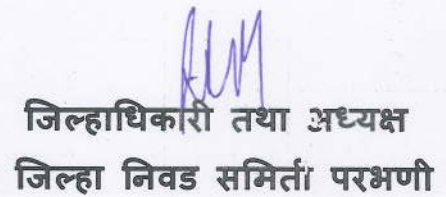 जिल्हाधिकारी तथा अध्यक्ष
जिल्हा निवड समिती परभणी